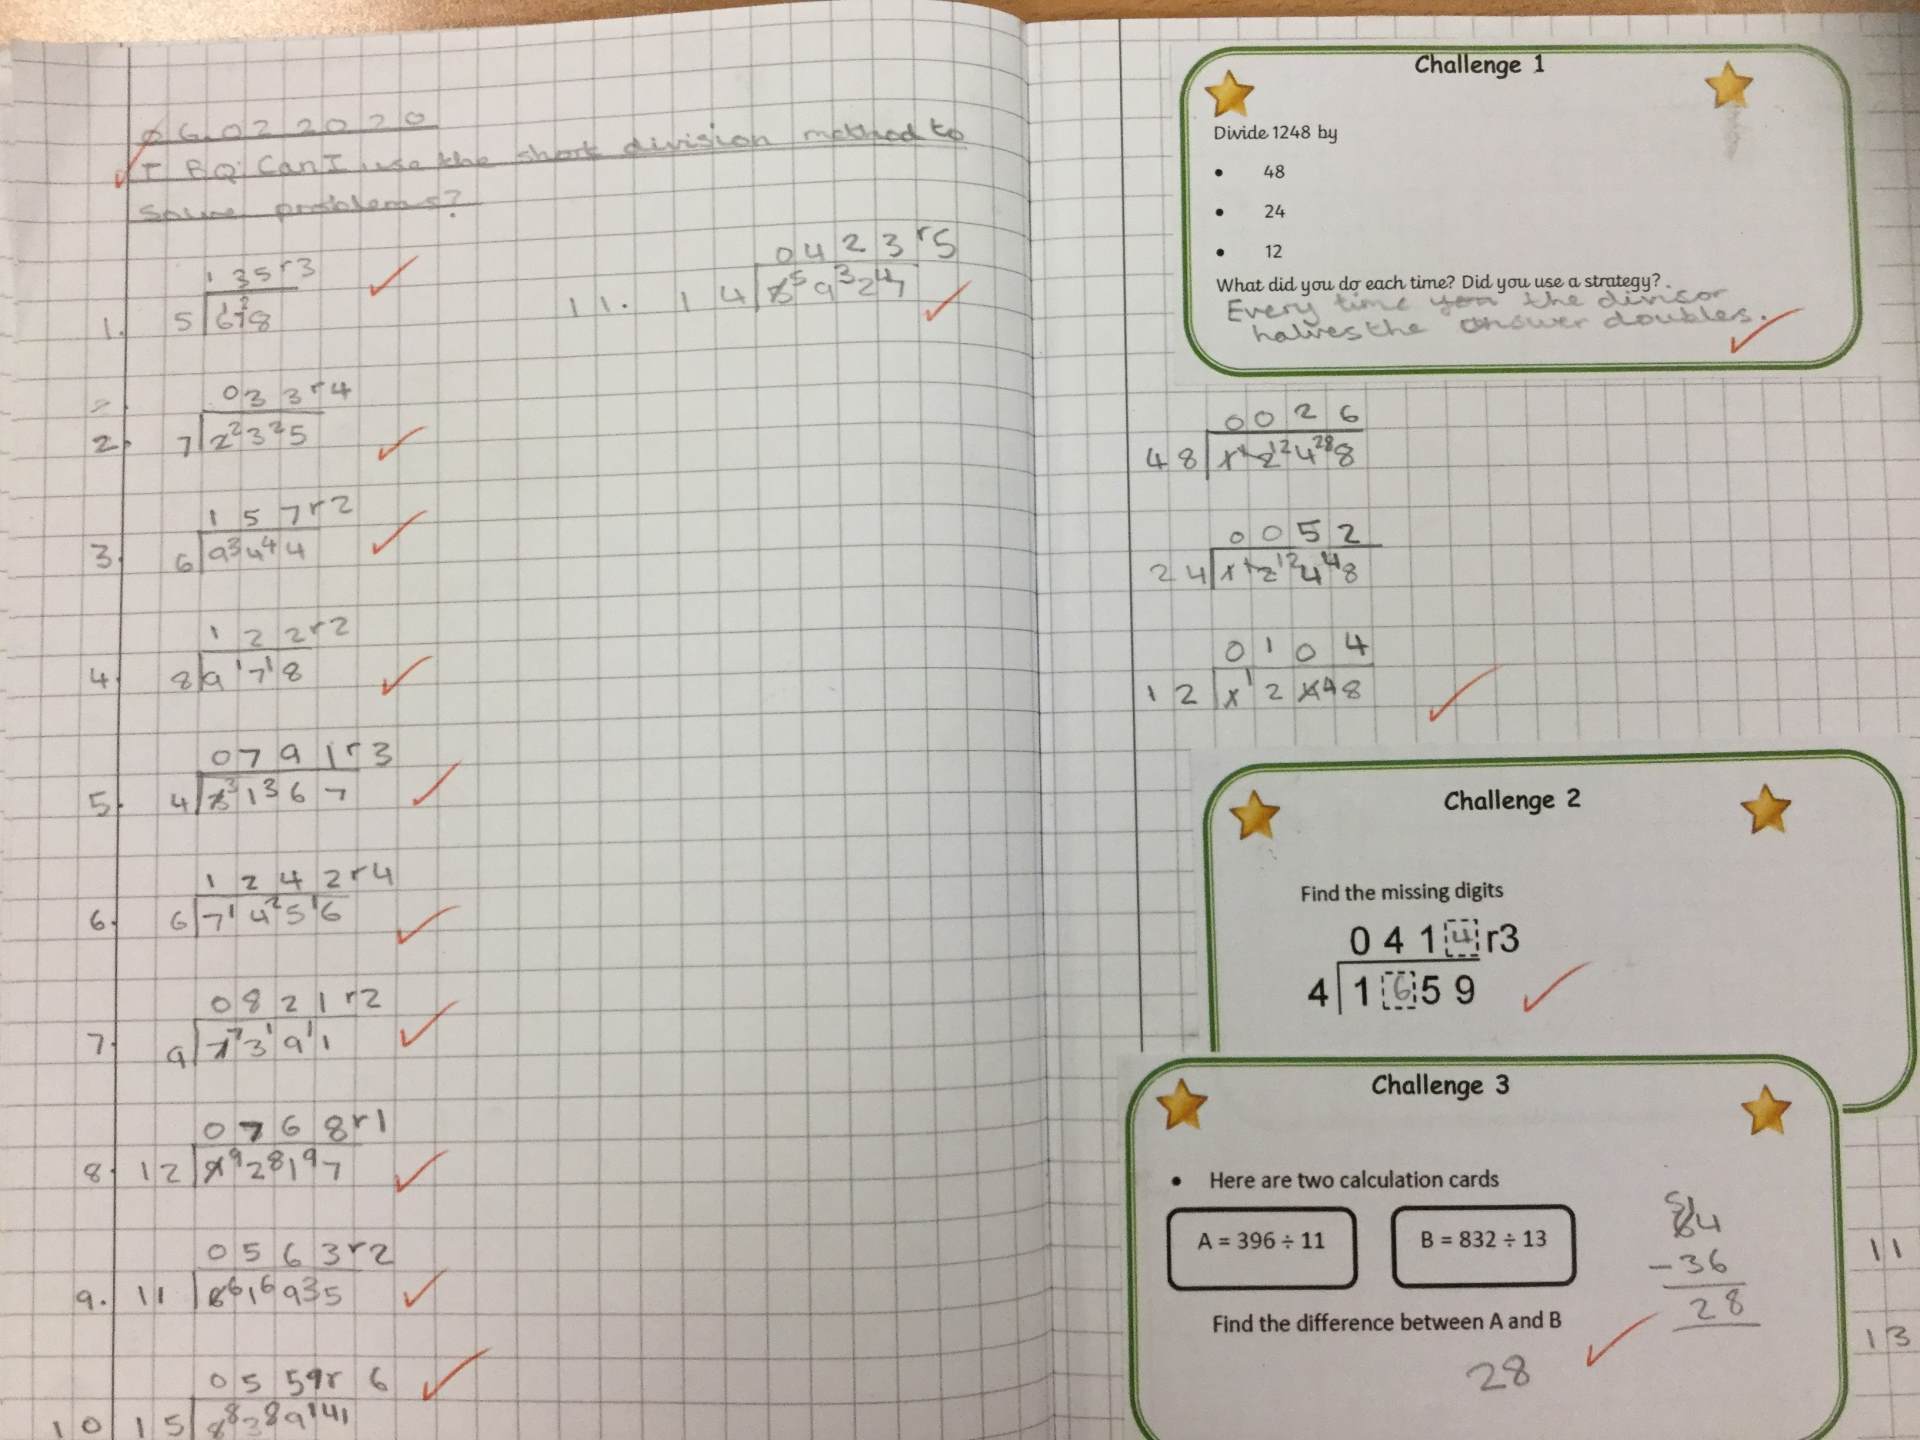 06.02 2020
I EQ: Can I use the short division method to
solve problems?
135r3
1. 5 678
033r4
2. 7 2²3²5
157r2
3. 6 9³4⁴4
122r2
4. 8 9¹7¹8
0791r3
5. 4 3³1³67
1242r4
6. 6 7¹4²5¹6
0821r2
7. 9 7⁷3¹9¹1
0768r1
8. 12 9⁹2⁸1⁹7
0563r2
9. 11 6⁶1⁶9³5
0559r6
10 15 8⁸3⁸9¹⁴1
0423r5
11. 14 5⁵9³2⁴7
Challenge 1
Divide 1248 by
• 48
• 24
• 12
What did you do each time? Did you use a strategy?
Every time the divisor
halves the answer doubles.
0026
48 1¹2¹²4²⁸8
0052
24 1¹2¹²4⁴8
0104
12 1¹2 4⁴8
Challenge 2
Find the missing digits
0 4 1 4 r3
4 1 6 5 9
Challenge 3
• Here are two calculation cards
A = 396 ÷ 11
B = 832 ÷ 13
Find the difference between A and B
28
64
-36
28
11
13